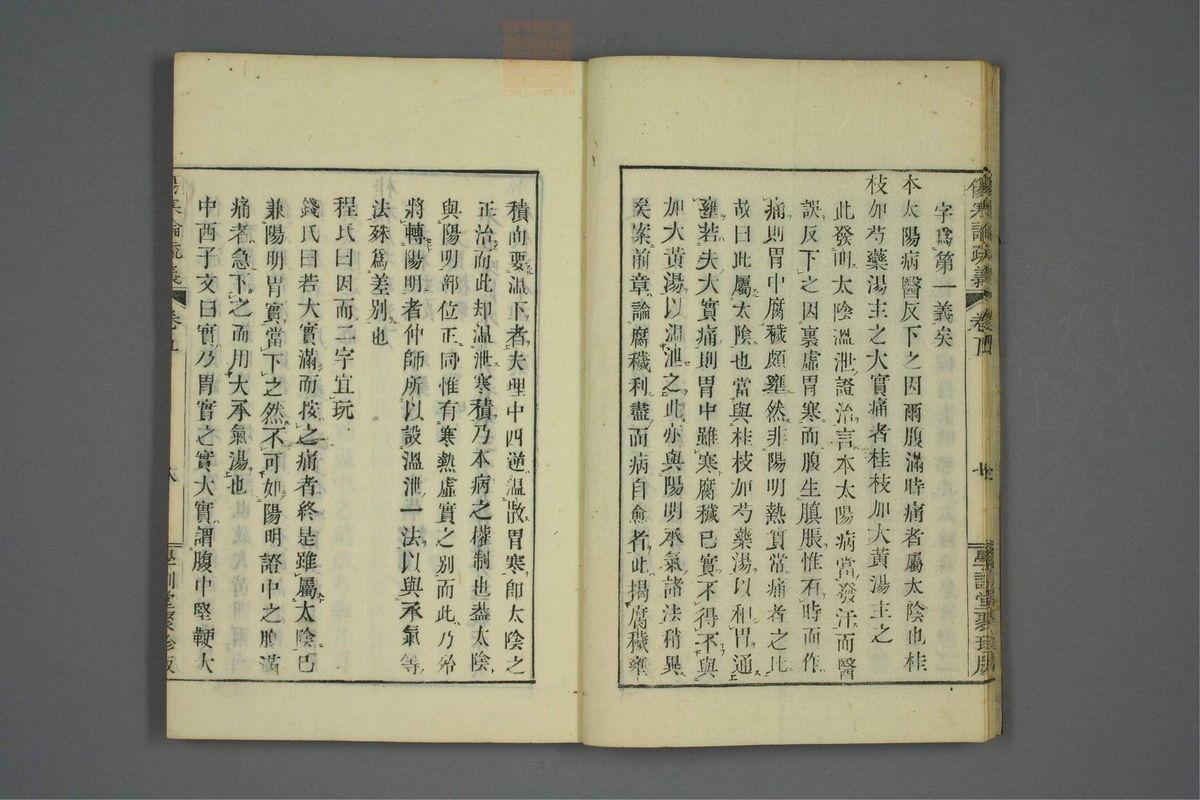 字爲第一義矣
本太陽病醫反下之因爾腹滿時痛者屬太陰也桂
枝加芍藥湯主之大實痛者桂枝加大黃湯主之
此發明太陰溫泄證治言本太陽病當發汗而醫
誤反下之因裏虛胃寒而腹生䐜脹惟有時而作
痛則胃中腐穢頗壅然非陽明熱實當痛者之比
故曰此屬太陰也當與桂枝加芍藥湯以和胃通
壅若夫大實痛則胃中雖寒腐穢已實不得不與
加大黃湯以溫泄之此亦與陽明承氣諸法稍異
矣案前章論腐穢利盡而病自愈者此揭腐穢壅
積尚要溫下者夫理中四逆溫散胃寒卽太陰之
正治而此却溫泄寒積乃本病之權制也蓋太陰
與陽明部位正同惟有寒熱虛實之別而此乃殆
將轉陽明者仲師所以設溫泄一法以與承氣等
法殊爲差別也
程氏曰因而二字宜玩
錢氏曰若大實滿而按之痛者終是雖屬太陰已
兼陽明胃實當下之然不可如陽明證中之腹滿
痛者急下之而用大承氣湯也
中西子文曰實乃胃實之實大實謂腹中堅鞕大
傷寒論疏義
卷
學訓堂聚珍版
傷寒論疏義
卷五
學訓堂聚珍版